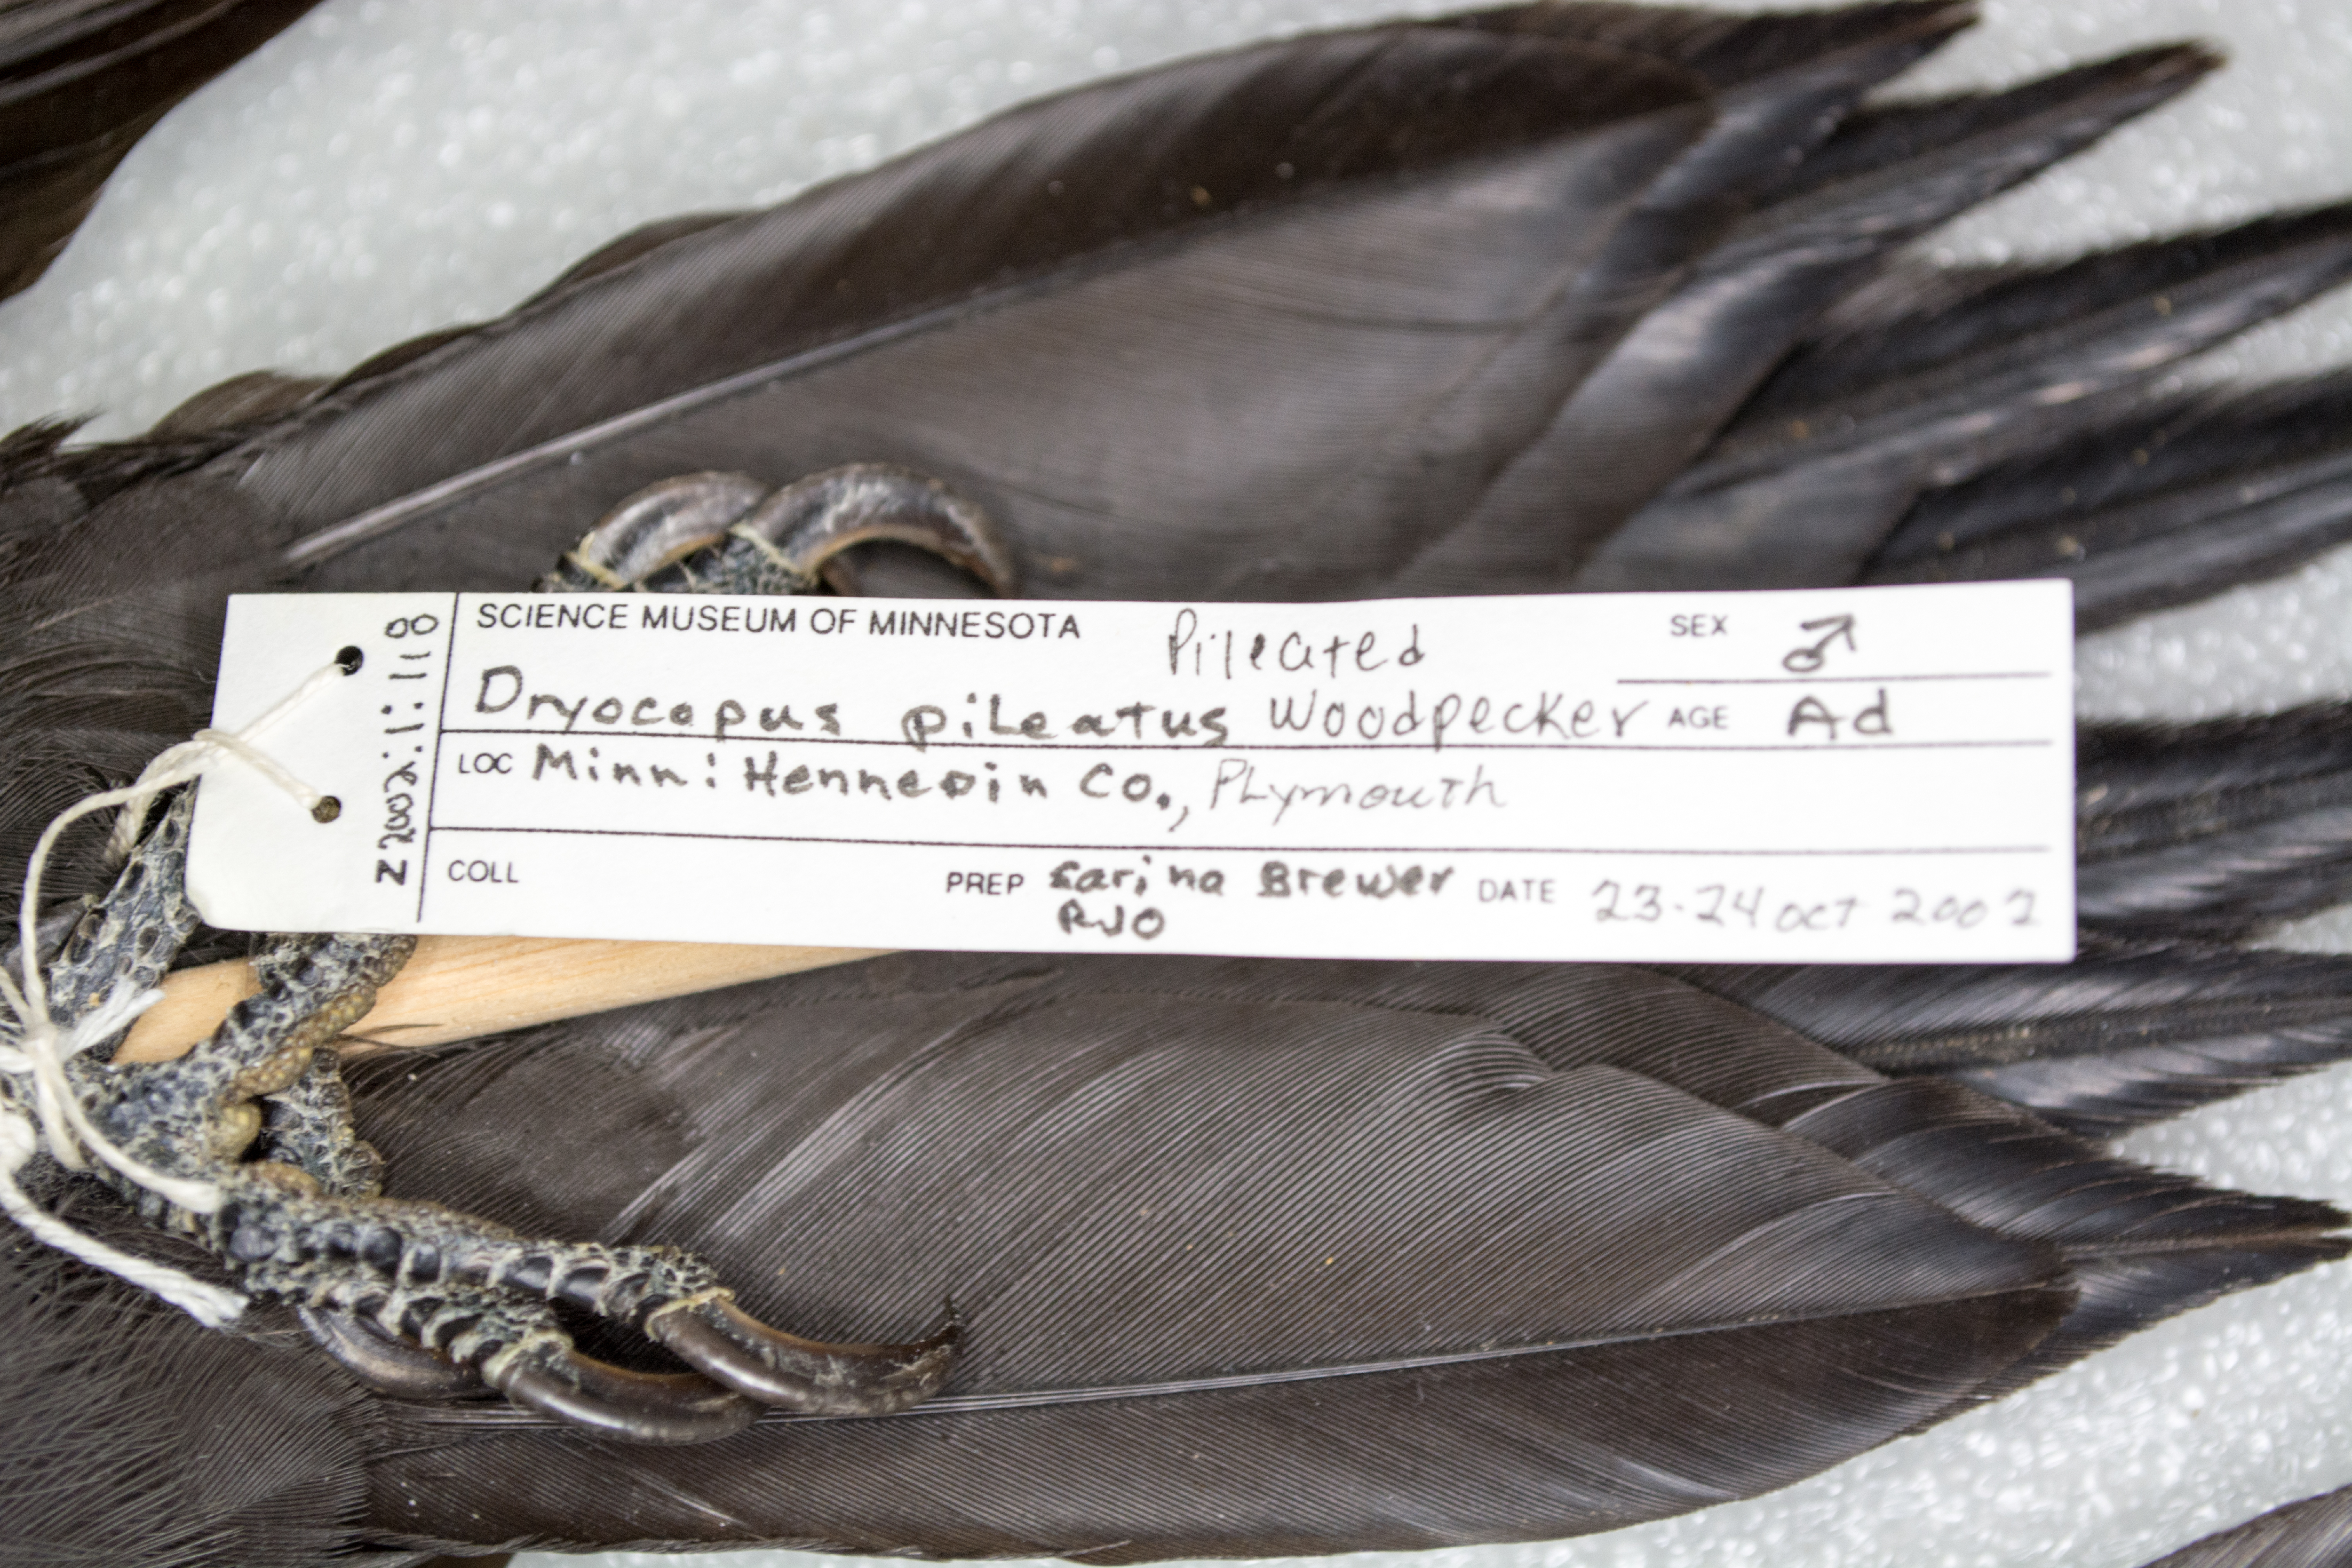 SCIENCE MUSEUM OF MINNESOTA Pileated SEX ♂
Dryocopus pileatus Woodpecker AGE Ad
LOC Minn: Hennepin Co., Plymouth
COLL PREP Sarina Brewer DATE 23-24 Oct 2002
RJO
Z 2002:1:118